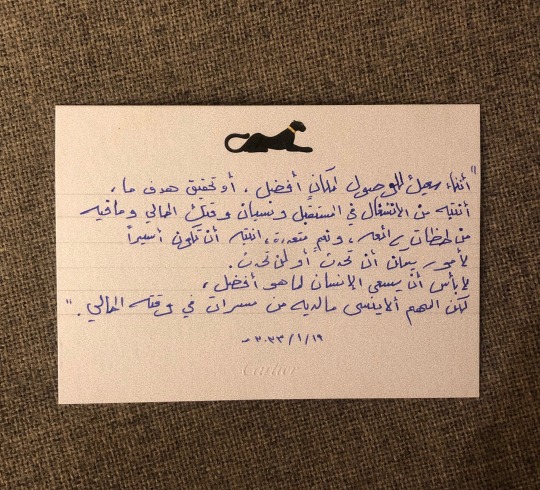 "أثناء سعيك للوصول لمكانٍ أفضل، أو تحقيق هدف ما،
أنتبه من الانشغال في المستقبل ونسيان وقتك الحالي ومافيه
من لحظات رائعه، ونعم متعددة، انتبه أن تكون أسيراً
لأمور يمكن أن تحدث أو لن تحدث.
لا بأس أن يسعى الإنسان لما هو أفضل،
لكن المهم ألا ينسى ما لديه من مسرات في وقته الحالي."
٢٠٢٣/١/١٩ م
Cartier